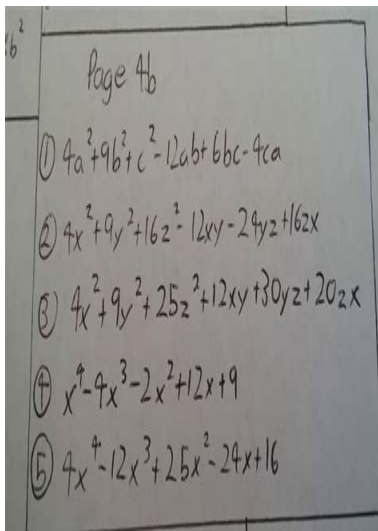 b²
Page 4b
① 4a²+9b²+c²-12ab+6bc-4ca
② 4x²+9y²+16z²-12xy-24yz+16zx
③ 4x²+9y²+25z²+12xy+30yz+20zx
④ x⁴-4x³-2x²+12x+9
⑤ 4x⁴-12x³+25x²-24x+16